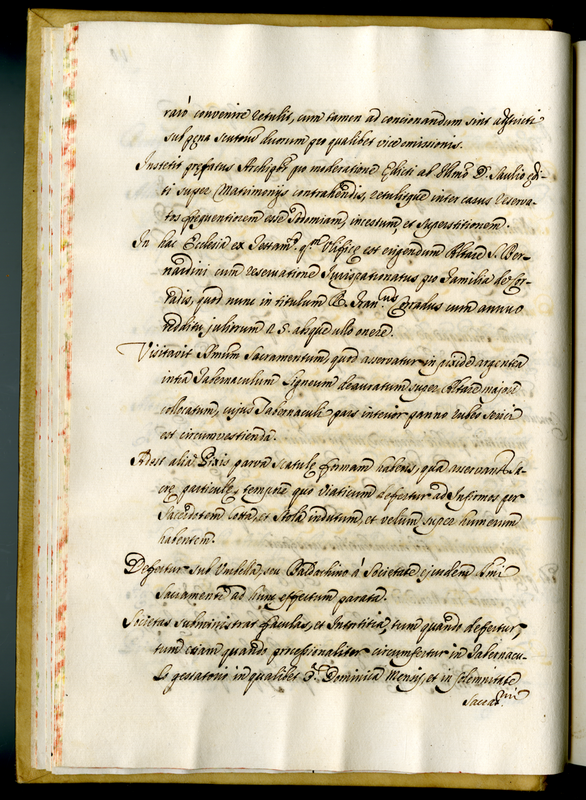 rarò convenire retulit, cum tamen ad concionandum sint adstricti
sub pœna scutorũ duorum pro qualibet vice omissionis.
Institit prefatus Archipr̃ pro moderatione Edicti ab Illmo D. Saulio edi-
ti super Matrimonijs contrahendis, retulitque inter casus reserva-
tos frequentiorem esse Sodomiam, incestum et superstitionem.
In hac Ecclesia ex Testamto est erigendum Altare S. Ber-
nardini cum reservatione Jurispatronatus pro familia de Cor-
radis, quod nunc in titulum R. Corradus cum annuo
redditu juliorum 25. absque ullo onere.
Visitavit Smum Sacramentum, quod asservatur in pixide argentea
intra Tabernaculum ligneum deauratum super Altare majori
collocatum, cujus Tabernaculi pars interior panno rubro serici
est circumvestienda.
Adest alia Pixis parva scatulę formam habens, qua asservantr Sa-
cre particulę, tempore quo Viaticum defertur ad Infirmos per
Sacerdotem Cotta, et Stola indutum, et velum super humerum
habentem.
Defertur sub Umbella, seu Baldachino à Societate ejusdem Smi
Sacramenti ad hunc effectum parata.
Societas subministrat faculas, et Intortitia, tum quando defertur,
tum etiam quando processionaliter circumfertur in Tabernacu-
lo gestatorio in qualibet 3.ª Dominica Mensis, et in solemnitate
Sacrami